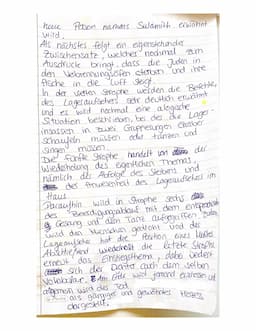 neue Person namens Sulamith erwähnt
wird.
Als nächstes folgt ein eigenständiger
Zwischensatz, welcher nochmal zum
Ausdruck bringt, dass die Juden in
den Verbrennungsöfen sterben und ihre
Asche in die Luft steigt.
In der vierten Strophe werden die Befehle
des Lageraufsehers sehr deutlich erwähnt
und es wird nochmal eine alltägliche
Situation beschrieben, bei der die Lager-
insassen in zwei Gruppierungen entweder
schaufeln müssen oder tanzen und
singen müssen.
Die fünfte Strophe handelt von der
Wiederholung des eigentlichen Themas,
nämlich der Abfolge des Sterbens und
der Anwesenheit des Lageraufsehers im
Haus.
Daraufhin wird in Strophe sechs
der Beerdigungsablauf mit dem
Gesang und dem Tanz aufgegriffen.
wird den Menschen gedroht und der
Lageraufseher hat die Position eines
Abschließend wiederholt die letzte Strophe
erneut das Einstiegsthema, dabei
sich der Dichter auch dem selben
Vokabular. Am Ende wird jemand
wird der Tod
als gängiges und gewohntes
dargestellt.